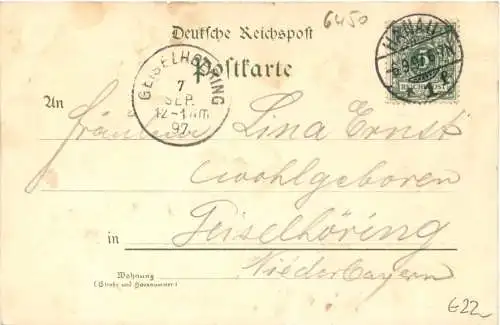 6450
Deutsche Reichspost
Postkarte
HANAU
6.9.97
GEISELHÖRING
7
SEP.
12-1 Nm
97
An
Fräulein Lina Ernst
wohlgeboren
in Geiselhöring
Niederbayern
Wohnung
(Straße und Hausnummer)
€22,-